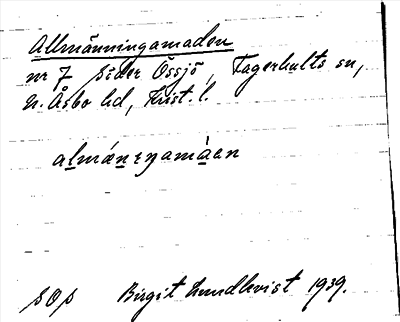 Allmänningamaden
nr 7 Söder Össjö, Fagerhults sn,
N. Åsbo hd, Krist. l.
almáneŋamàen
sOp Birgit Lundkvist 1939.